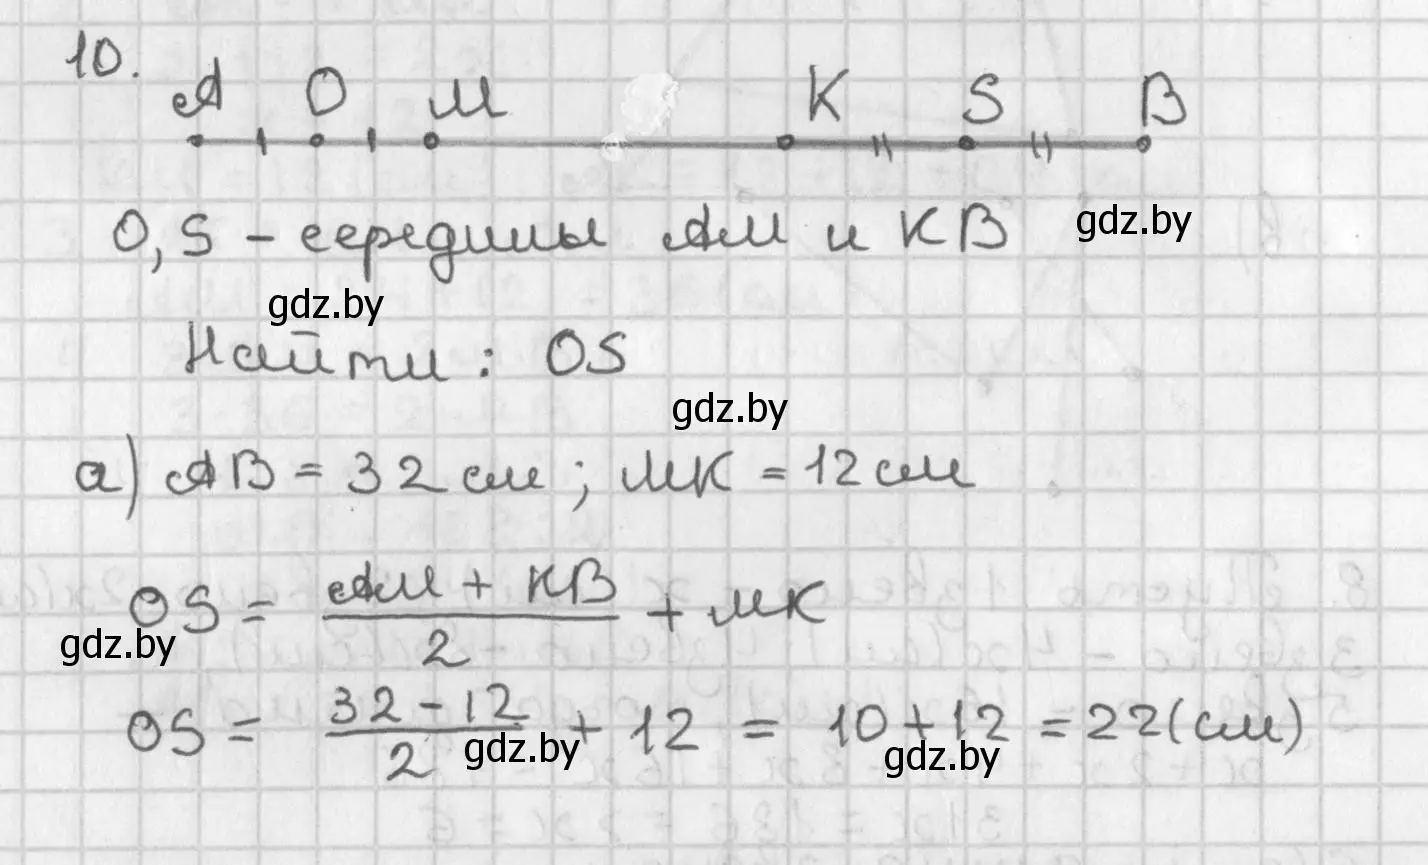 10.
A O M K S B
O, S - середины AM и KB
gdz.by
gdz.by
Найти: OS
gdz.by
a) AB = 32 см; MK = 12 см
OS = (AM + KB)/2 + MK
gdz.by
OS = (32 - 12)/2 + 12 = 10 + 12 = 22 (см)
gdz.by gdz.by